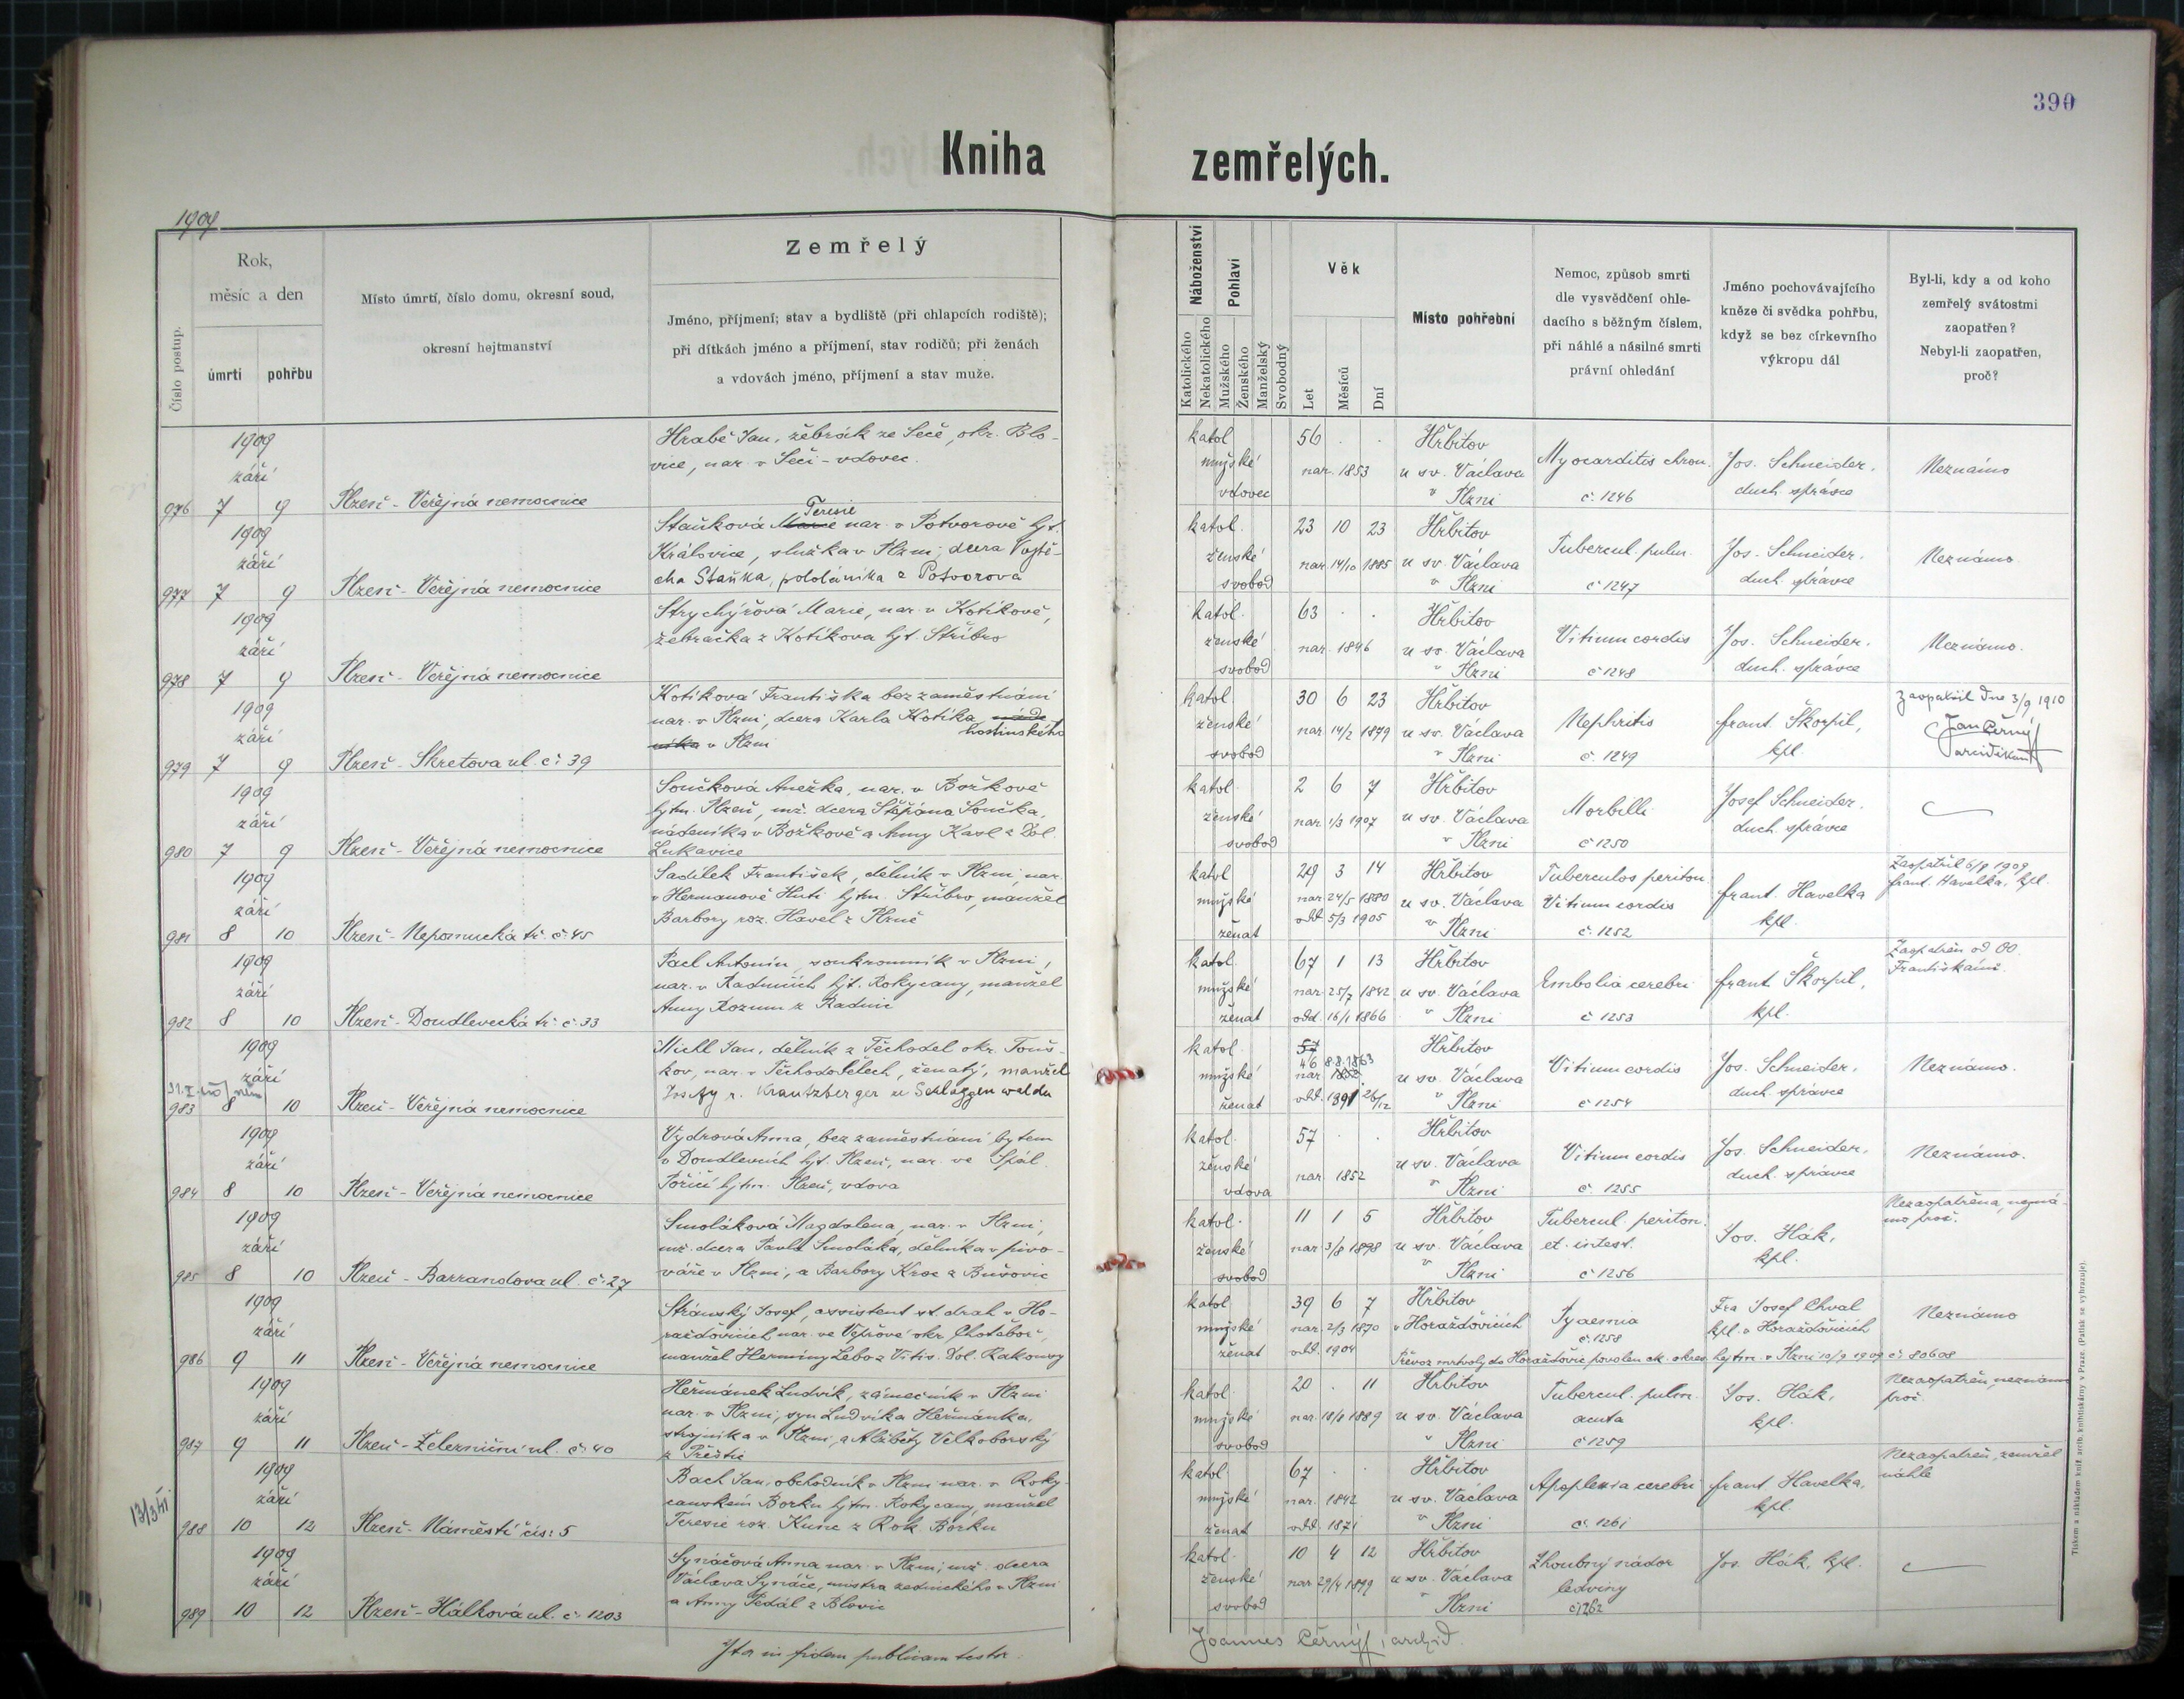 390
Kniha zemřelých.
1909
Číslo postup.
Rok,
měsíc a den
úmrtí
pohřbu
Místo úmrtí, číslo domu, okresní soud,
okresní hejtmanství
Zemřelý
Jméno, příjmení; stav a bydliště (při chlapcích rodiště);
při dítkách jméno a příjmení, stav rodičů; při ženách
a vdovách jméno, příjmení a stav muže.
Náboženství
Katolického
Nekatolického
Pohlaví
Mužského
Ženského
Manželský
Svobodný
Věk
Let
Měsíců
Dní
Místo pohřební
Nemoc, způsob smrti
dle vysvědčení ohle-
dacího s běžným číslem,
při náhlé a násilné smrti
právní ohledání
Jméno pochovávajícího
kněze či svědka pohřbu,
když se bez církevního
výkropu dál
Byl-li, kdy a od koho
zemřelý svátostmi
zaopatřen?
Nebyl-li zaopatřen,
proč?
976
1909
září
7 9
Plzeň - Veřejná nemocnice
Hrabě Jan, žebrák ze Seče, okr. Blo-
vice, nar. v Seči - vdovec.
katol
mužské
vdovec
56 . .
nar. 1853
Hřbitov
u sv. Václava
v Plzni
Myocarditis chron.
č. 1246
Jos. Schneider,
duch. správce
Neznámo
977
1909
září
7 9
Plzeň - Veřejná nemocnice
Teresie
Staňková Marie nar. v Potvorově hjt.
Královice, služka v Plzni, dcera Vojtě-
cha Staňka, pololáníka z Potvorova
katol.
ženské
svobod
23 10 23
nar. 14/10 1885
Hřbitov
u sv. Václava
v Plzni
Tubercul. pulm.
č 1247
Jos. Schneider,
duch. správce
Neznámo
978
1909
září
7 9
Plzeň - Veřejná nemocnice
Strychýřová Marie, nar. v Kotíkově,
žebračka z Kotíkova hjt. Stříbro
katol.
ženské
svobod
63 . .
nar. 1846
Hřbitov
u sv. Václava
v Plzni
Vitium cordis
č 1248
Jos. Schneider.
duch. správce
Neznámo.
979
1909
září
7 9
Plzeň - Skretova ul. č: 39
Kotíková Františka bez zaměstnání
nar. v Plzni, dcera Karla Kotíka
hostinského
v Plzni
katol.
ženské
svobod
30 6 23
nar 14/2 1879
Hřbitov
u sv. Václava
v Plzni
Nephritis
č. 1249
frant. Škorpil,
kpl.
Zaopatřil dne 3/9 1910
Jan Černý
arciděkan
980
1909
září
7 9
Plzeň - Veřejná nemocnice
Součková Anežka, nar. v Božkově
hjtm. Plzeň, mž. dcera Štěpána Součka,
nádeníka v Božkově a Anny Kasl z Dol.
Lukavice
katol
ženské
svobod
2 6 7
nar 1/3 1907
Hřbitov
u sv. Václava
v Plzni
Morbilli
č 1250
Josef Schneider.
duch. správce
981
1909
září
8 10
Plzeň - Nepomucká tř. č. 45
Sadílek František, dělník v Plzni, nar.
v Heřmanově Huti hjtm. Stříbro, manžel
Barbory roz. Havel z Plzně
katol
mužské
ženat
29 3 14
nar 24/5 1880
odd. 5/3 1905
Hřbitov
u sv. Václava
v Plzni
Tuberculos periton
Vitium cordis
č. 1252
frant. Havelka
kpl.
Zaopatřil 6/9 1909
frant. Havelka, kpl.
982
1909
září
8 10
Plzeň - Doudlevecká tř. č. 33
Pacl Antonín, soukromník v Plzni,
nar. v Radnicích hjt. Rokycany, manžel
Anny Rozum z Radnic
katol.
mužské
ženat
67 1 13
nar 25/7 1842
odd. 16/1 1866
Hřbitov
u sv. Václava
v Plzni
Embolia cerebri
č 1253
frant Škorpil,
kpl.
Zaopatřen od OO.
Františkánů.
983
1909
září
8 10
Plzeň - Veřejná nemocnice
Michl Jan, dělník z Těchodel okr. Touš-
kov, nar. v Těchodělech, ženatý, manžel
r. Krautzberger ze Schlaggenwaldu
katol
mužské
ženat
57
46 8.8.1863
nar 1852
odd. 1891 26/12
Hřbitov
u sv. Václava
v Plzni
Vitium cordis
č 1254
Jos. Schneider,
duch. správce
Neznámo.
984
1909
září
8 10
Plzeň - Veřejná nemocnice
Vydrová Anna, bez zaměstnání bytem
v Doudlevcích hjt. Plzeň, nar. ve Spál.
Poříčí hjtm. Plzeň, vdova
katol.
ženské
vdova
57 . .
nar 1852
Hřbitov
u sv. Václava
v Plzni
Vitium cordis
č. 1255
Jos. Schneider,
duch. správce
Neznámo.
985
1909
září
8 10
Plzeň - Barrandova ul. č. 27
Smoláková Magdalena, nar. v Plzni,
mž. dcera Pavla Smoláka, dělníka v pivo-
váře v Plzni, a Barbory Kroc z Bušovic
katol.
ženské
svobod
11 1 5
nar 3/8 1898
Hřbitov
u sv. Václava
v Plzni
Tubercul. periton.
et. intest.
č 1256
Jos. Hák,
kpl.
Nezaopatřena, nezná-
mo proč.
986
1909
září
9 11
Plzeň - Veřejná nemocnice
Stránský Josef, assistent st. drah v Ho-
ražďovicích, nar. ve Vepřově okr. Chotěboř,
manžel Hermíny Lebo z Vitis. Dol. Rakousy
katol
mužské
ženat
39 6 7
nar 2/3 1870
odd. 1904
Hřbitov
v Horažďovicích
Pyaemia
č. 1258
Fra Josef Chval
kpl. v Horažďovicích
Neznámo
Převoz mrtvoly do Horažďovic povolen ck. okres. hejtm. v Plzni 10/9 1909 č. 80608
987
1909
září
9 11
Plzeň - Železniční ul. č. 40
Heřmánek Ludvík, zámečník v Plzni
nar. v Plzni, syn Ludvíka Heřmánka,
strojníka v Plzni, a Alžběty Velkoborský
z Přeštic
katol.
mužské
svobod
20 . 11
nar. 1889
Hřbitov
u sv. Václava
v Plzni
Tubercul. pulm.
acuta
č 1259
Jos. Hák,
kpl.
Nezaopatřen, neznámo
proč.
13/3 VI
988
1909
září
10 12
Plzeň - Náměstí čís: 5
Bach Jan, obchodník v Plzni nar. v Roky-
canském Borku hjtm. Rokycany, manžel
Teresie roz. Kunc z Rok. Borku
katol.
mužské
ženat
67 . .
nar. 1842
odd. 1871
Hřbitov
u sv. Václava
v Plzni
Apoplexia cerebri
č. 1261
frant. Havelka,
kpl.
Nezaopatřen, zemřel
náhle
989
1909
září
10 12
Plzeň - Hálkova ul. č. 1203
Synáčová Anna nar. v Plzni, mž. dcera
Václava Synáče, mistra zednického v Plzni
a Anny Tedál z Blovic
katol.
ženské
svobod
10 4 12
nar 29/4 1899
Hřbitov
u sv. Václava
v Plzni
Zhoubný nádor
ledviny
č 1262
Jos. Hák, kpl.
Ita in fidem publicam testor:
Joannes Černý, archid.
Tiskem a nákladem kníž. arcib. knihtiskárny v Praze. (Patisk se vyhrazuje).